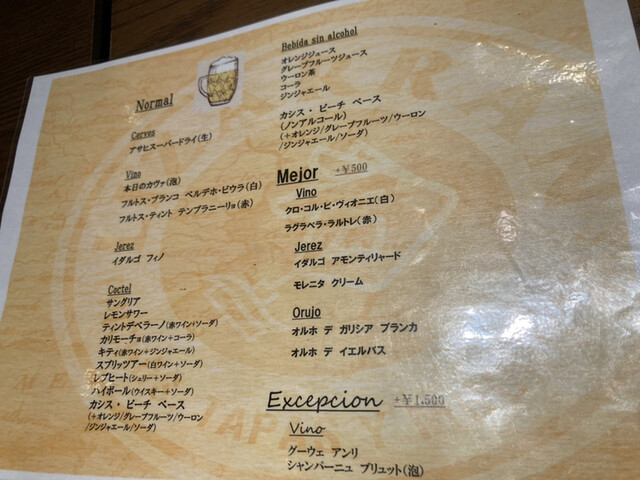 Normal
Cerves
アサヒスーパードライ(生)
Vino
本日のカヴァ(泡)
フルトス・ブランコ ベルデホ・ビウラ(白)
フルトス・ティント テンプラニーリョ(赤)
Jerez
イダルゴ フィノ
Coctel
サングリア
レモンサワー
ティントデベラーノ(赤ワイン+ソーダ)
カリモーチョ(赤ワイン+コーラ)
キティ(赤ワイン+ジンジャエール)
スプリッツアー(白ワイン+ソーダ)
レブヒート(シェリー+ソーダ)
ハイボール(ウイスキー+ソーダ)
カシス・ピーチ ベース
(+オレンジ/グレープフルーツ/ウーロン
/ジンジャエール/ソーダ)
Bebida sin alcohol
オレンジジュース
グレープフルーツジュース
ウーロン茶
コーラ
ジンジャエール
カシス・ピーチ ベース
(ノンアルコール)
(+オレンジ/グレープフルーツ/ウーロン
/ジンジャエール/ソーダ)
Mejor +¥500
Vino
クロ・コル・ビ・ヴィオニエ(白)
ラグラベラ・ラルトレ(赤)
Jerez
イダルゴ アモンティリャード
モレニタ クリーム
Orujo
オルホ デ ガリシア ブランカ
オルホ デ イエルバス
Excepcion +¥1,500
Vino
グーウェ アンリ
シャンパーニュ ブリュット(泡)